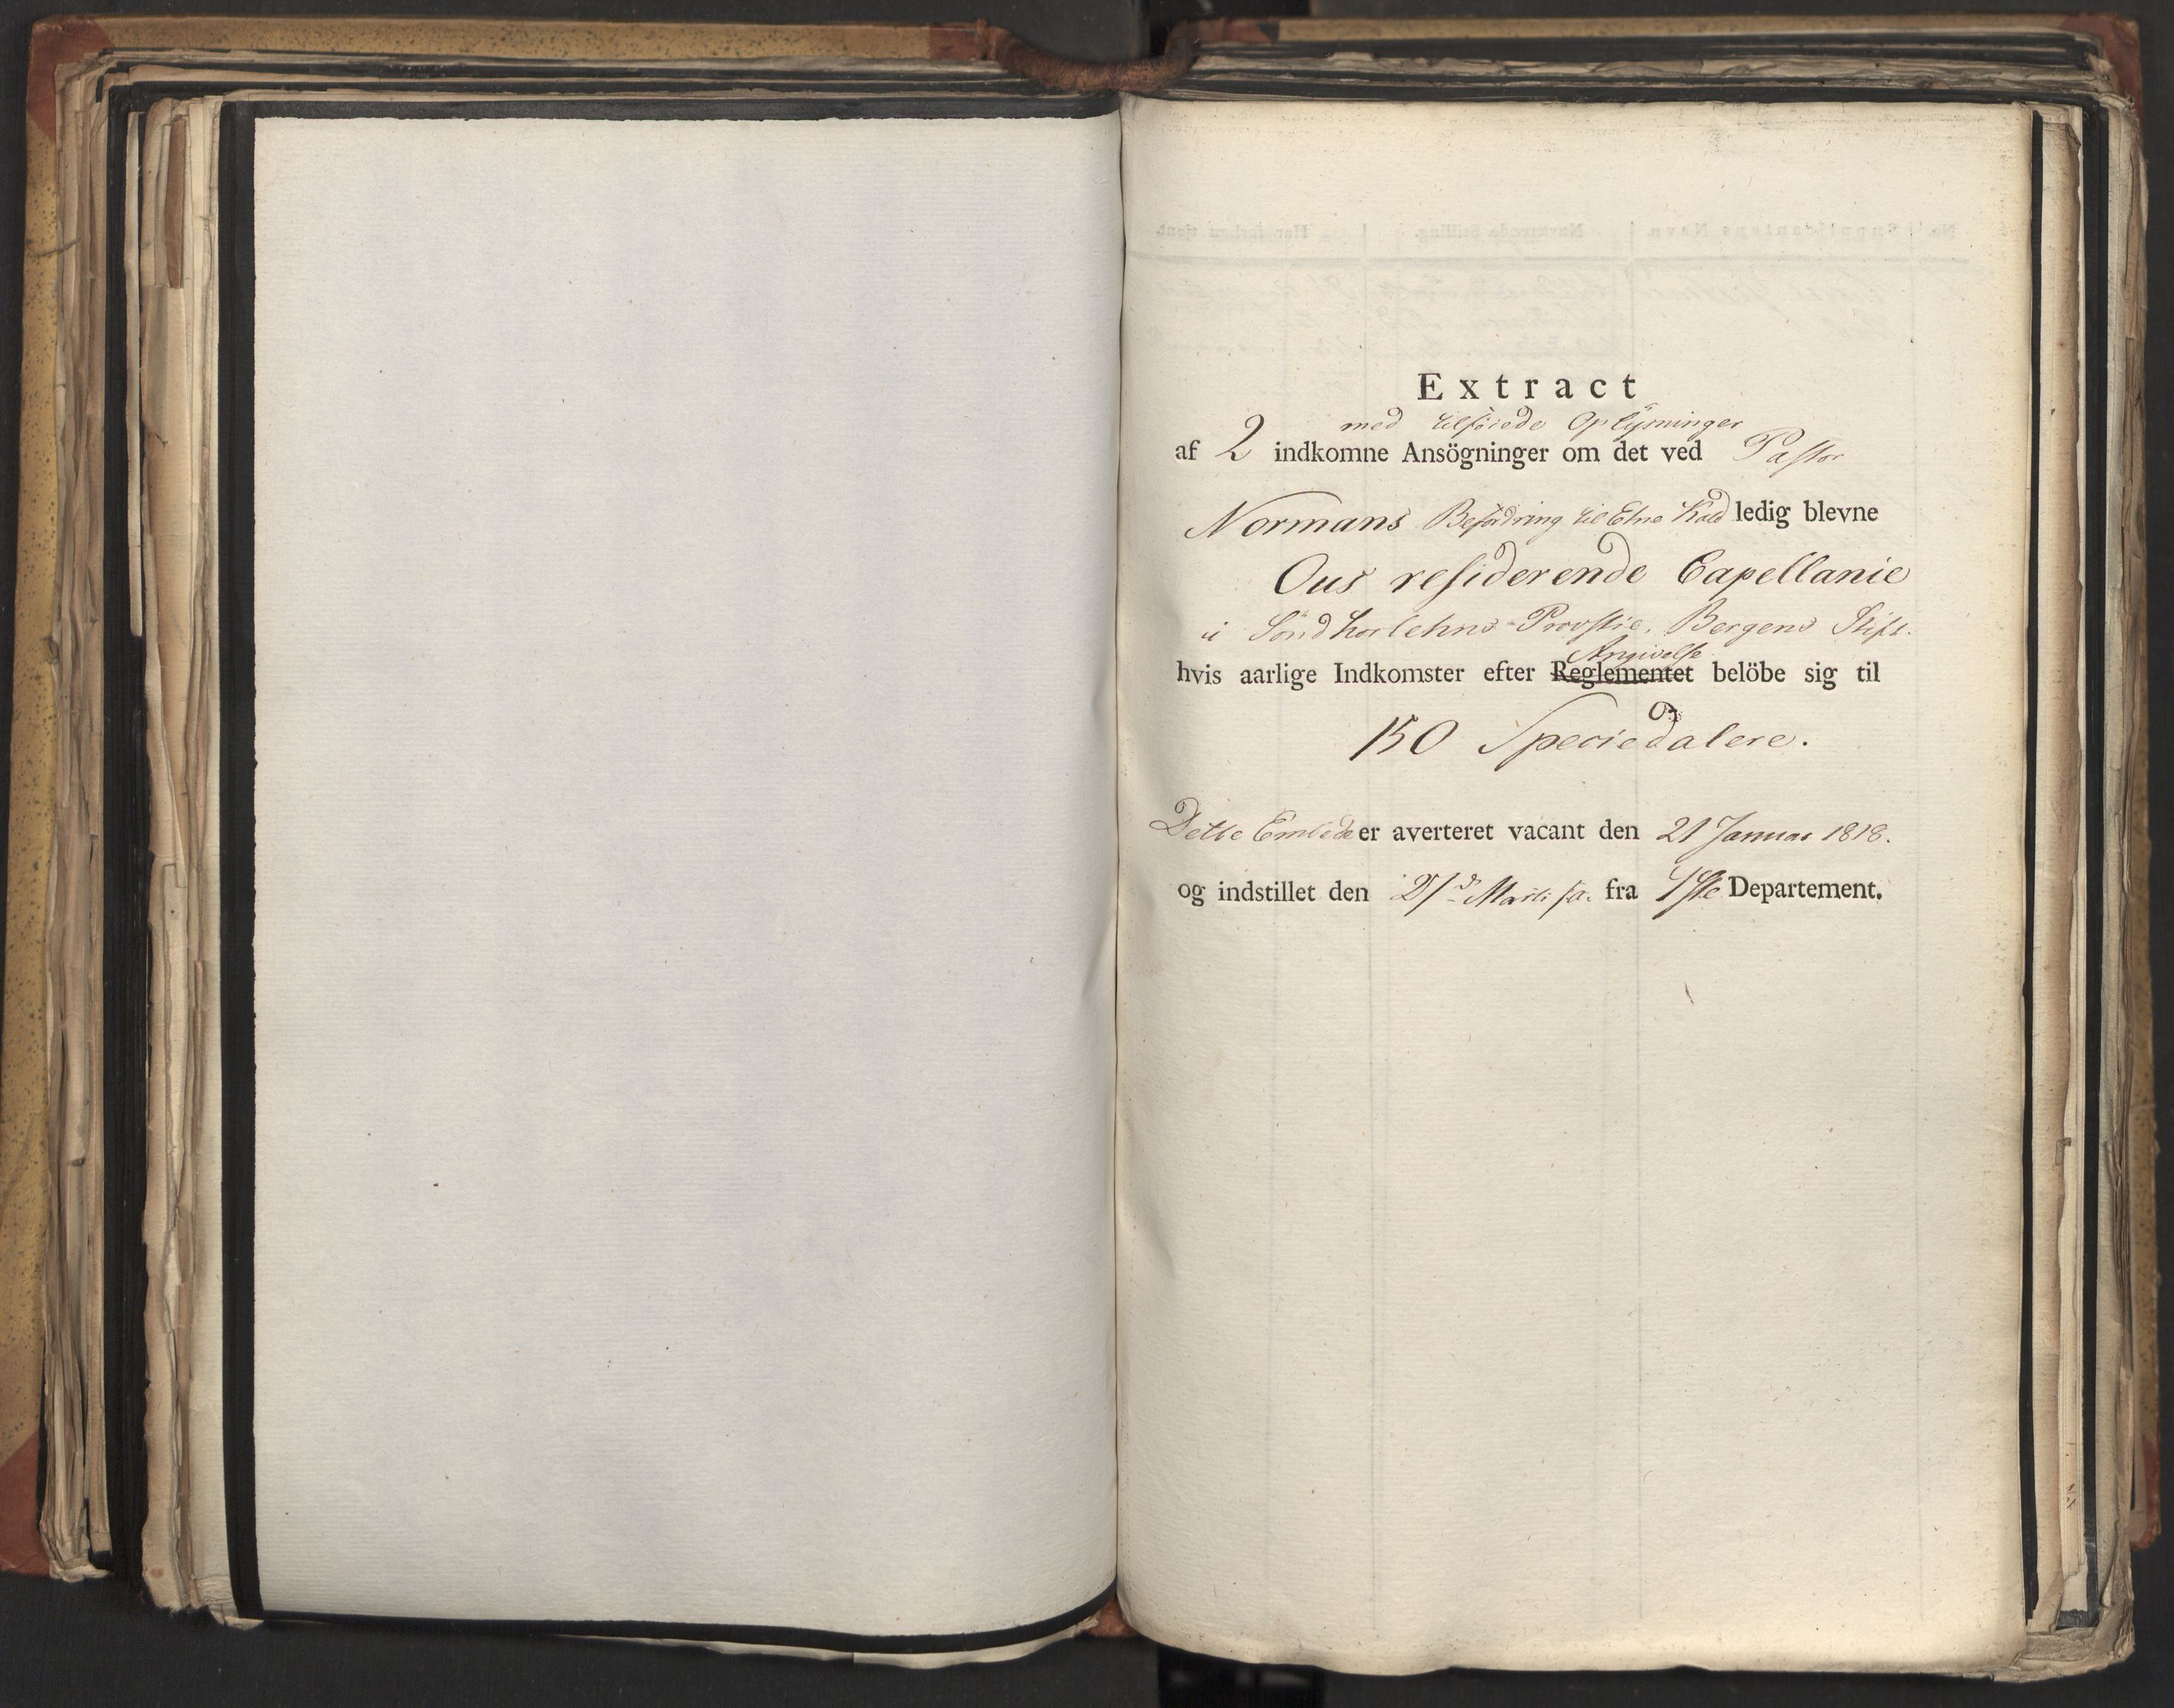 Extract
med tilföiede Oplysninger
af 2 indkomne Ansögninger om det ved Pastor
Normans Befordring til Etne Kald ledig blevne
Ous residerende Capellanie
i Söndhorlehns Provstie, Bergens Stift.
Angivelse
hvis aarlige Indkomster efter Reglementet belöbe sig til
150 Speciedalere.
Dette Embede er averteret vacant den 21 Januar 1818.
og indstillet den Martii fra 1ste Departement.
No. Supplicantens Navn. Nuværende Stilling. Har forhen tjent